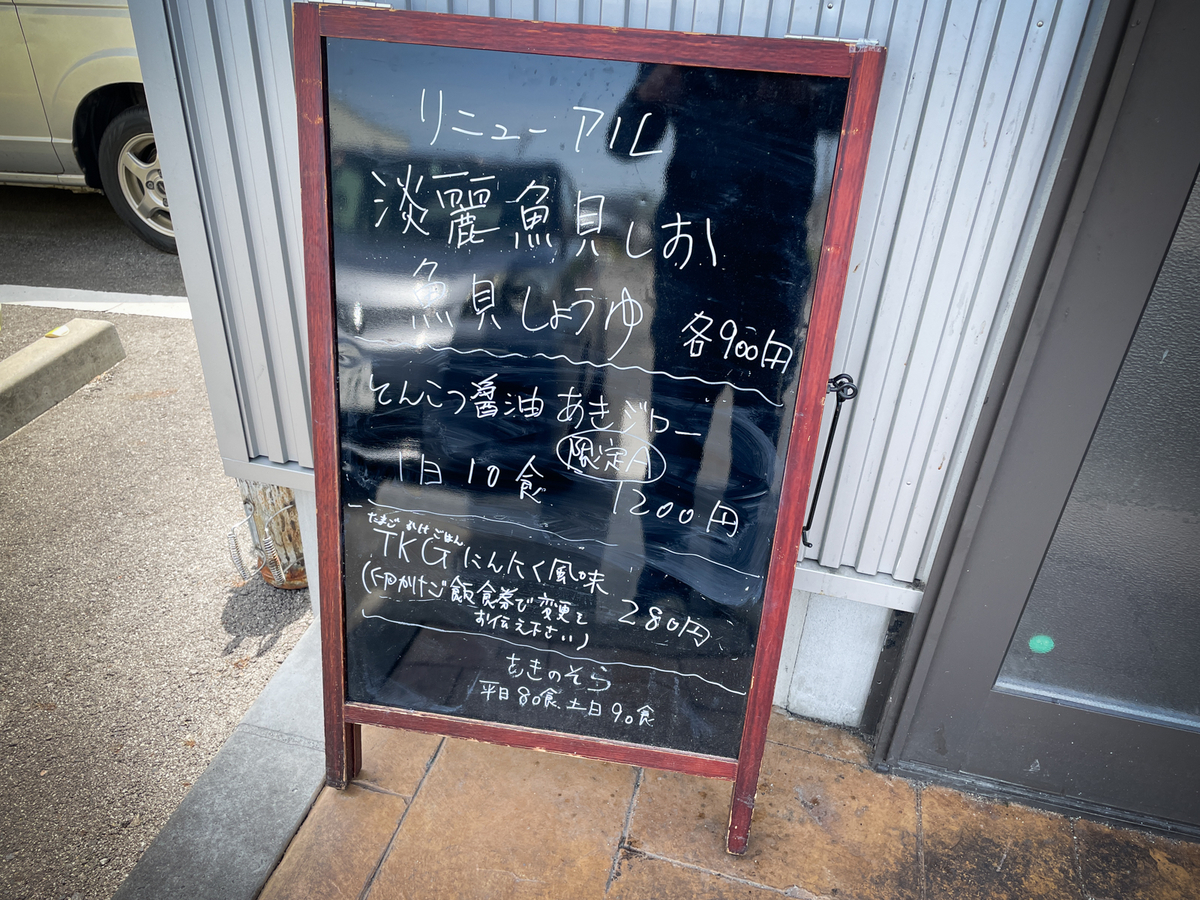 リニューアル
淡麗魚貝しお
魚貝しょうゆ 各900円
とんこつ醤油 あきジロー
限定A
1日10食 1200円
たまごかけごはん
TKGにんにく風味
280円
(卵かけご飯食券で変更と
お伝え下さい)
あきのそら
平日80食 土日90食